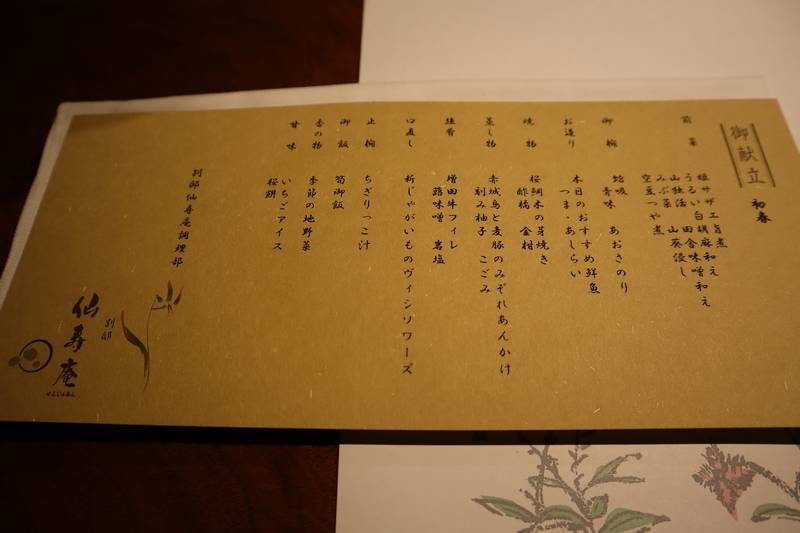 御献立
初春
前菜
姫サザエ旨煮
うるい白胡麻和え
山独活 田舎味噌和え
みぶ菜 山葵浸し
空豆つや煮
御椀
蛤吸
青味 あおさのり
お造り
本日のおすすめ鮮魚
つま・あしらい
焼物
桜鯛木の芽焼き
酢橘 金柑
蒸し物
赤城鳥と麦豚のみぞれあんかけ
刻み柚子 こごみ
強肴
増田牛フィレ
蕗味噌 岩塩
口直し
新じゃがいものヴィシソワーズ
止椀
ちぎりっこ汁
御飯
筍御飯
香の物
季節の地野菜
甘味
いちごアイス
桜餅
別邸仙寿庵調理部
別邸
仙寿庵
せんじゅあん